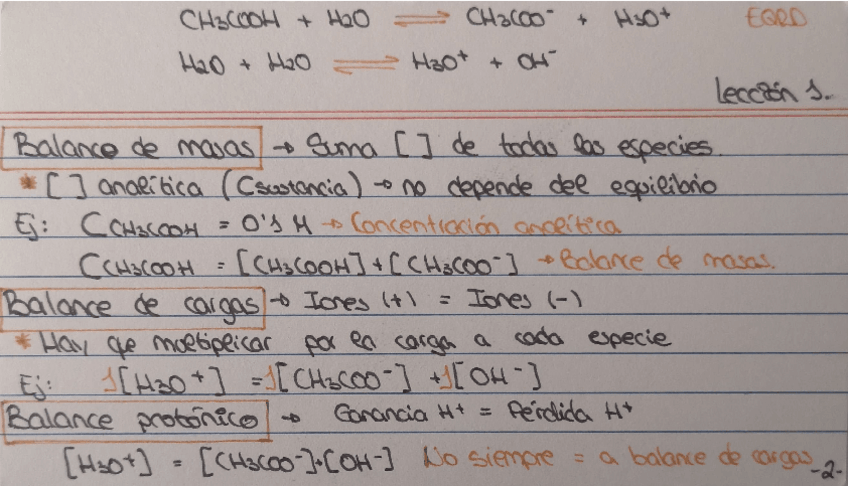 CH3COOH + H2O ⇌ CH3COO⁻ + H3O⁺ EQRD
H2O + H2O ⇌ H3O⁺ + OH⁻
Lección 1.
Balance de masas → Suma [ ] de todas las especies.
* [ ] analítica (Csustancia) → no depende del equilibrio
Ej: C CH3COOH = 0'1 M → Concentración analítica
C CH3COOH = [CH3COOH] + [CH3COO⁻] → Balance de masas.
Balance de cargas → Iones (+) = Iones (-)
* Hay que multiplicar por la carga a cada especie
Ej: 1[H3O⁺] = 1[CH3COO⁻] + 1[OH⁻]
Balance protónico → Ganancia H⁺ = Pérdida H⁺
[H3O⁺] = [CH3COO⁻]+[OH⁻] No siempre = a balance de cargas
-2-